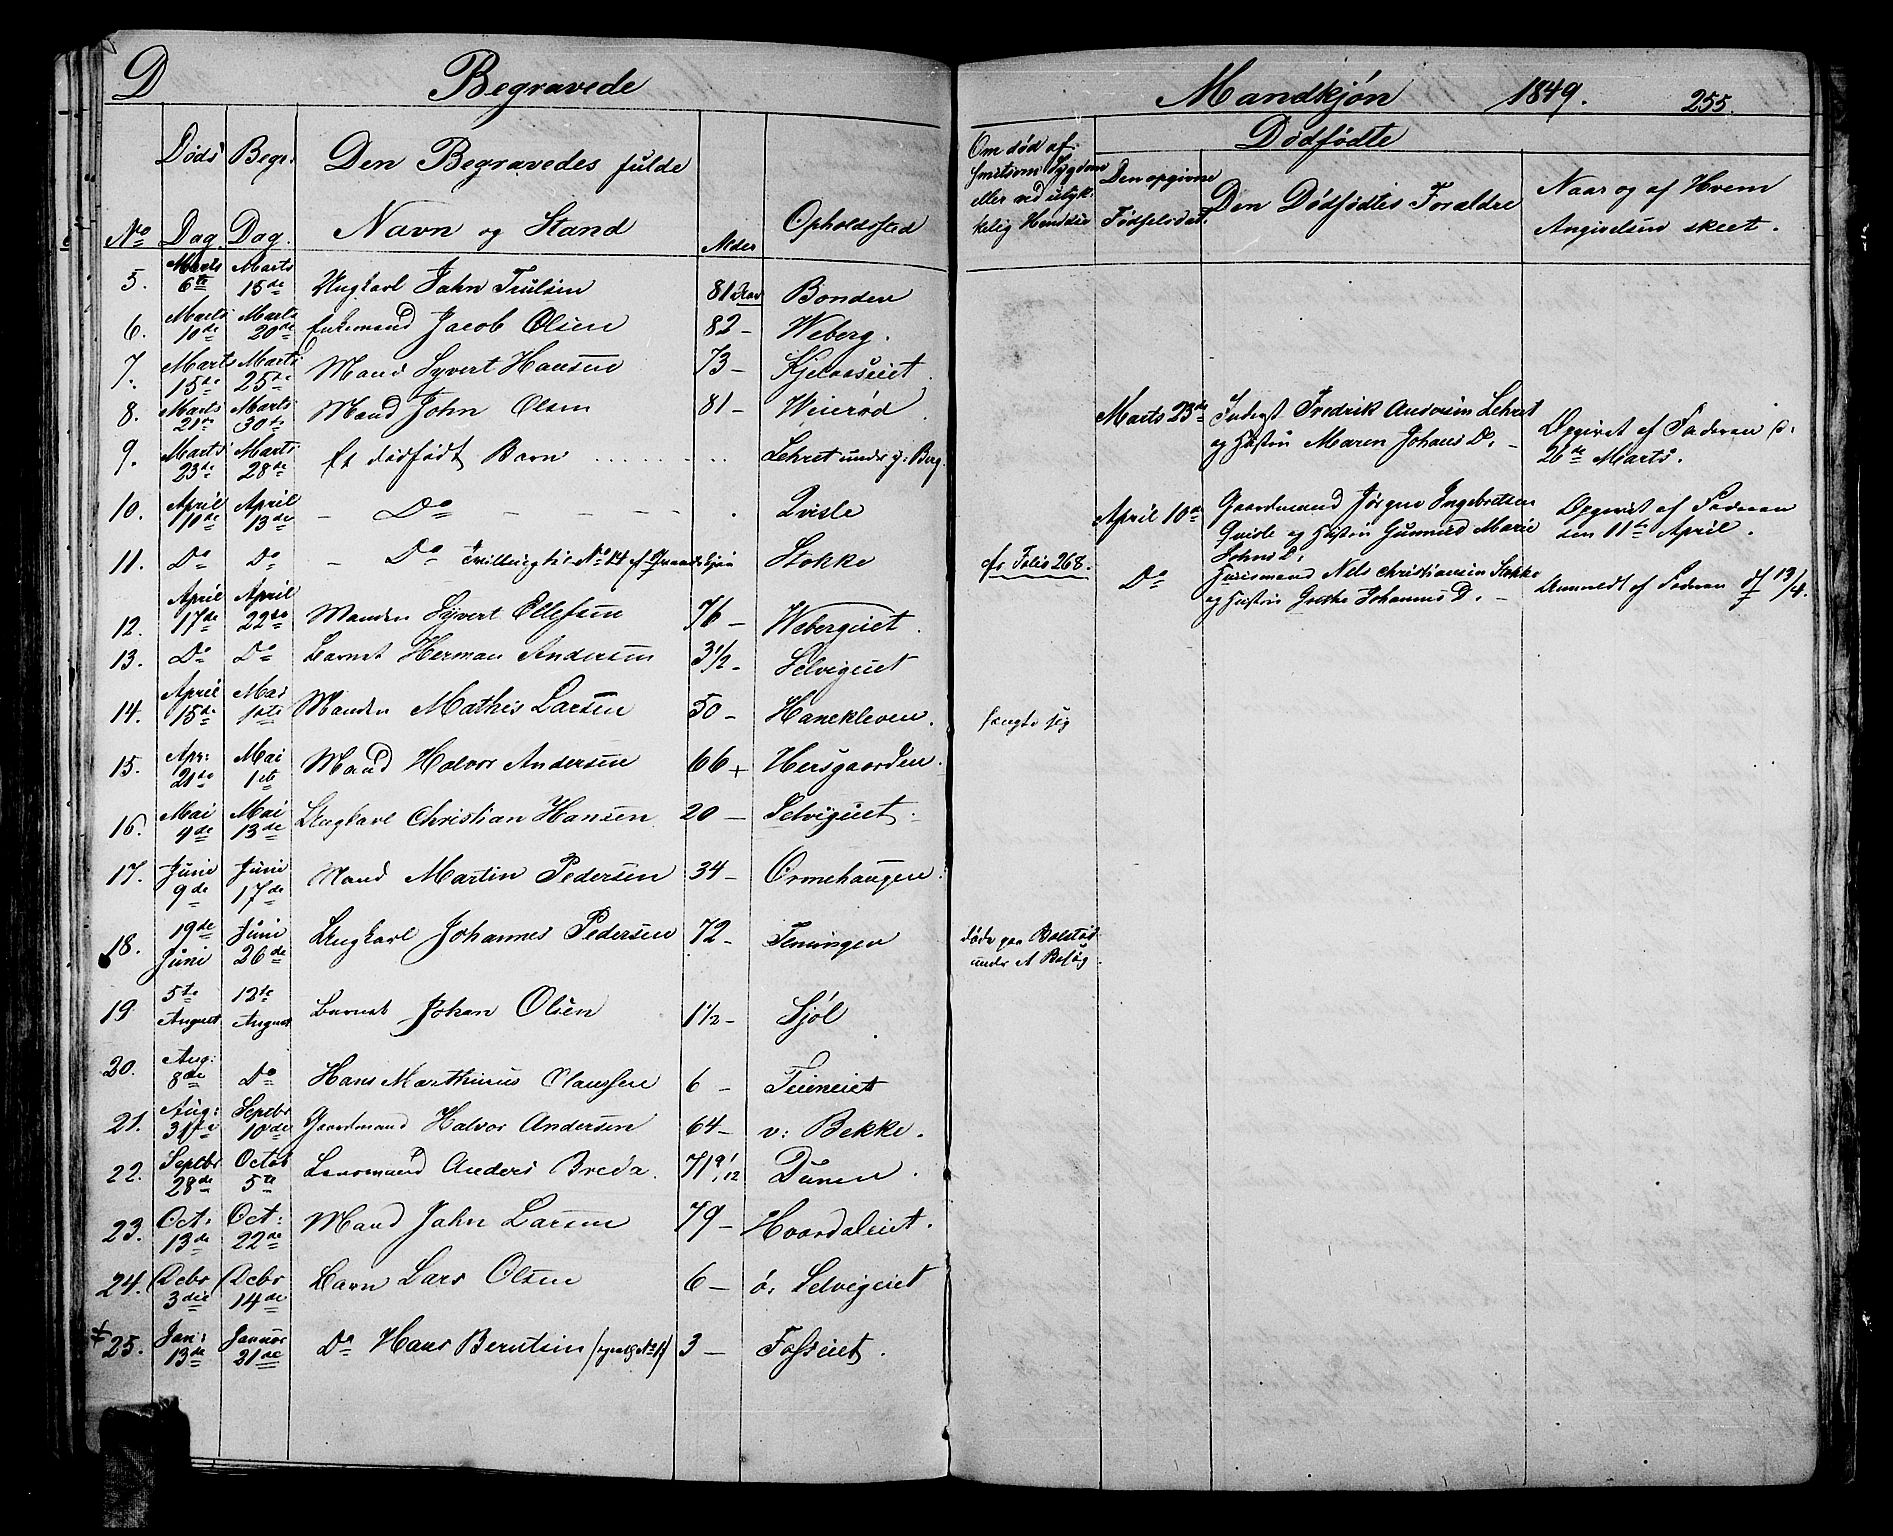 D Begravede Mandkjøn 1849. 255.
No Døds Dag. Begr. Dag. Den Begravedes fulde Navn og Stand Alder Opholdssted Om død af smitsom Sygdom eller ved ulyk- kelig Hændelse Dødfødte Den opgivne Fødselsdat. Den Dødfødtes Forældre Naar og af Hvem Angivelsen skeet.
5. Marts 6te Marts 15de Ungkarl John Trulsen 81 Aar Bonden
6. Marts 10de Marts 20de Enkemand Jacob Olsen 82 – Weberg.
7. Marts 15de Marts 25de Mand Syvert Hansen 73 – Kjelaaseiet.
8. Marts 21de Marts 30te Mand John Olsen 81 – Weierød.
9. Marts 23de Marts 28de Et dødfødt Barn . . . . . . Lehret under Berg. Marts 23de Frederik Andersen Lehret og Hustru Maren Johans D. – Opgivet af Faderen d: 26de Marts.
10. April 10de April 13de – Do – – – – . Qvisle April 10de Gaardmand Jørgen Ingebretsen Quisle og Hustru Gunnild Marie Johns D. Opgivet af Faderen den 11te April.
11. Do Do – Do Tvilling til No 14 af Qvindekjøn Stokke cfr Folio 268. Do Huusmand Nels Christiansen Stokke og Hustru Grethe Johannes D. – Anmeldt af Faderen d 13/4.
12. April 17de April 22de Manden Syvert Ellefsen 76 – Webergeiet.
13. Do Do Barnet Herman Andersen 3 1/2 – Selvigeiet
14. April 15de Mai 1ste Manden Mathis Larsen 50 – Hanekleven. hængte sig
15. Apr: 21de Mai 1te Mand Halvor Andersen 66 + Hersgaarden.
16. Mai 9de Mai 13de Ungkarl Christian Hansen 20 – Selvigeiet.
17. Juni 9de Juni 17de Mand Martin Pedersen 34 – Ormehaugen.
18. 19de Juni Juni 26de Ungkarl Johannes Pedersen 72 – Teningen døde paa Bolstad under et Besøg.
19 5te August 12te August Barnet Johan Olsen 1 1/2 – Sjøl
20. Aug: 8de Do Hans Marthinus Claussen 6 – Teieneiet
21. Aug: 31te Septbr 10de Gaardmand Halvor Andersen 64 – v: Bekke.
22. Septbr 28de Octob 5te Lensmand Anders Breda. 71 9/12 Duren.
23. Oct: 13de Oct: 22de Mand John Larsen 79 – Hvardaleiet.
24. Debr 3die Debr 14de Barn Lars Olsen 6 – ø. Selvigeiet
+ 25. Jan: 13de Januar 21de Do Hans Berntsen 3 – Fosseiet.